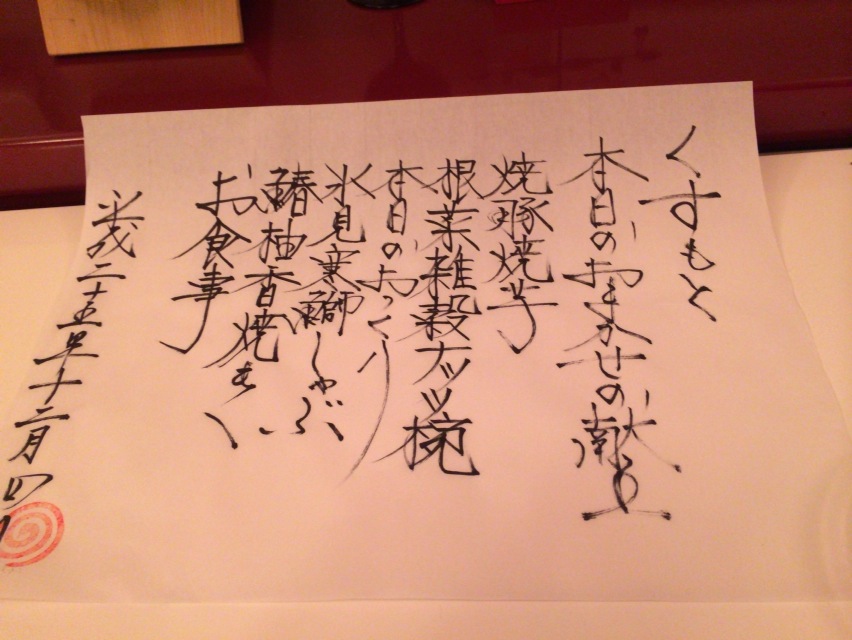 くすもと
本日のおまかせの献立
焼豚焼芋
根菜雑穀ナッツ椀
本日のおつくり
氷見寒鰤しゃぶ
鰆柚香焼
お食事
平成二十五年十二月四日